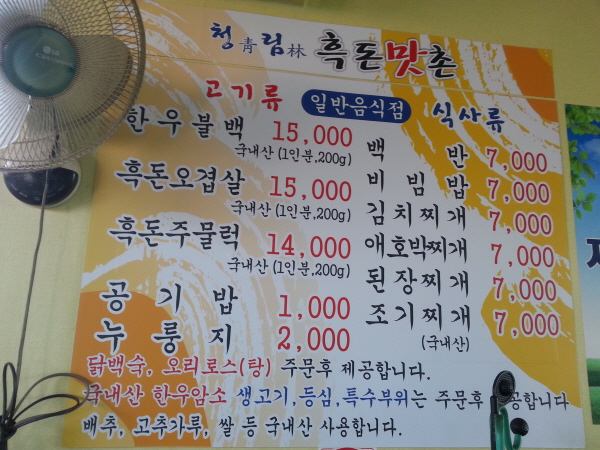 청靑림林 흑돈맛촌
고기류 일반음식점 식사류
한우불백 15,000
국내산 (1인분,200g)
흑돈오겹살 15,000
국내산 (1인분,200g)
흑돈주물럭 14,000
국내산 (1인분,200g)
공기밥 1,000
누룽지 2,000
백반 7,000
비빔밥 7,000
김치찌개 7,000
애호박찌개 7,000
된장찌개 7,000
조기찌개 7,000
(국내산)
닭백숙, 오리로스(탕) 주문후 제공합니다.
국내산 한우암소 생고기,등심,특수부위는 주문후 공합니다
배추, 고추가루, 쌀 등 국내산 사용합니다.
LG